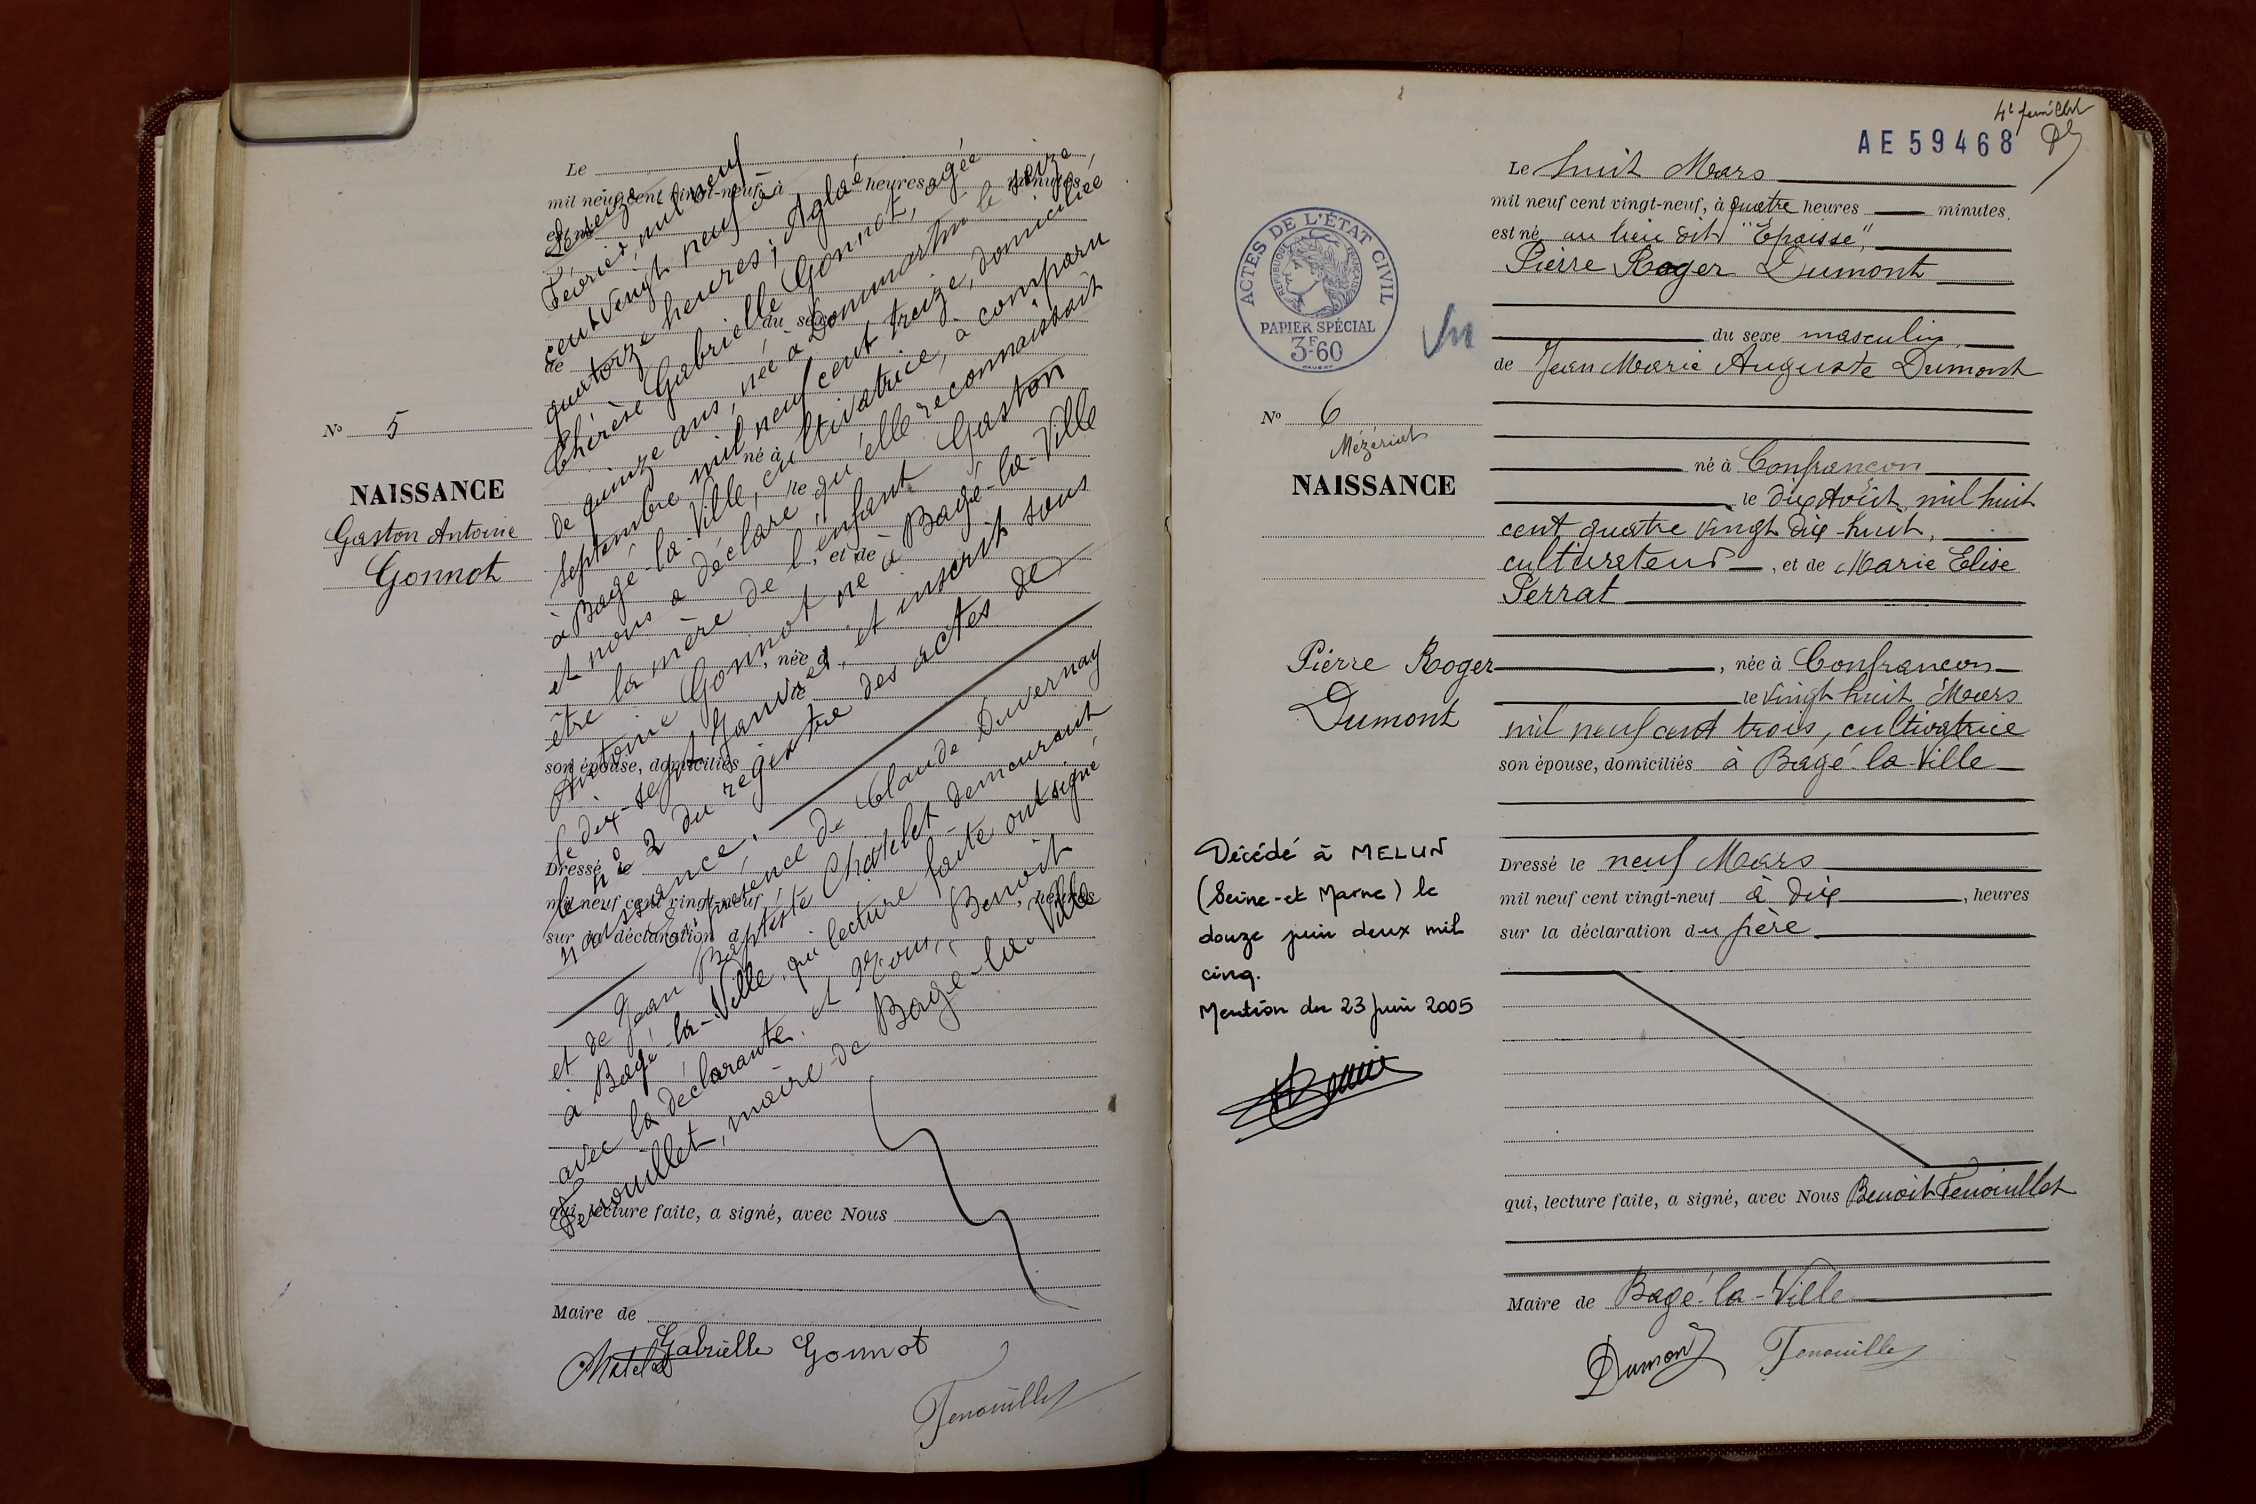 Le
mil neuf cent vingt-neuf, à heures minutes
est né
du sexe
de
né à
le
, et de
, née à
le
son épouse, domiciliés
Dressé le
mil neuf cent vingt-neuf , heures
sur la déclaration d
qui, lecture faite, a signé, avec Nous
Maire de
No 5
NAISSANCE
Gaston Antoine
Gonnot
Le seize
Février, mil neuf
cent vingt neuf à
quatorze heures; Aglaé,
Thérèse Gabrielle Gonnot, agée
de quinze ans, née à Dommartin le seize
septembre mil neuf cent treize, domiciliée
à Bagé-la-Ville, cultivatrice, a comparu
et nous a déclaré qu'elle reconnaissait
être la mère de l'enfant Gaston
Antoine Gonnot né à Bagé-la-Ville
le dix-sept Janvier, et inscrit sous
le n° 2 du registre des actes de
naissance.
En présence de Claude Duvernay
et de Jean Baptiste Chatelet demeurant
à Bagé-la-Ville, qui lecture faite ont signé
avec la déclarante, et Nous, Benoit
Fenouillet, maire de Bagé-la-Ville
Gabrielle Gonnot
Chatelet
Fenouillet
4e feuillet
AE 59468
ACTES DE L'ÉTAT CIVIL
RÉPUBLIQUE FRANÇAISE
PAPIER SPÉCIAL
3F60
No 6
Mézériat
NAISSANCE
Pierre Roger
Dumont
Décédé à MELUN
(Seine-et Marne) le
douze juin deux mil
cinq.
Mention du 23 juin 2005
Le huit Mars
mil neuf cent vingt-neuf, à quatre heures minutes.
est né au lieu dit "Epaisse",
Pierre Roger Dumont
du sexe masculin,
de Jean Marie Auguste Dumont
né à Confrançon
le dix Août mil huit
cent quatre vingt dix-huit,
cultivateur, et de Marie Elise
Perrat
, née à Confrançon
le vingt huit Mars
mil neuf cent trois, cultivatrice
son épouse, domiciliés à Bagé-la-Ville
Dressé le neuf Mars
mil neuf cent vingt-neuf à dix , heures
sur la déclaration du père
qui, lecture faite, a signé, avec Nous Benoit Fenouillet
Maire de Bagé-la-Ville
Dumont Fenouillet